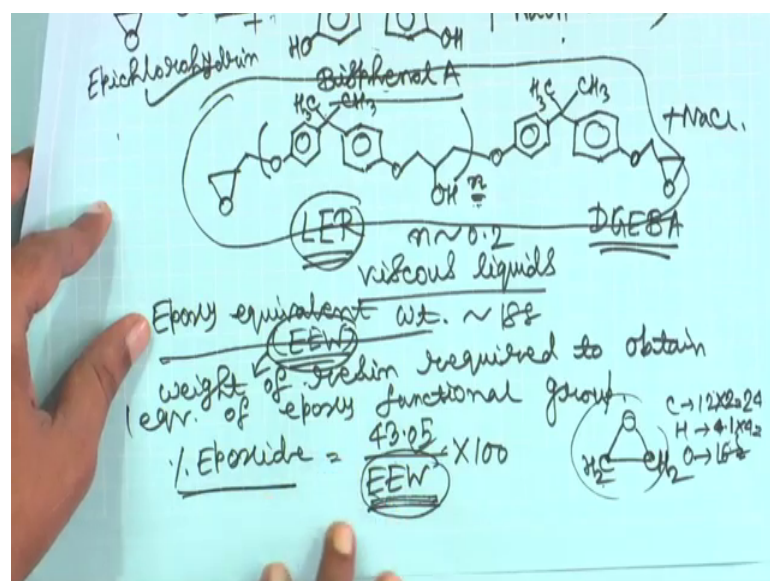 +
HO OH
Epichlorohydrin
Bisphenol A
H3C CH3 H3C CH3
+NaCl.
O O O O O O
OH n
LER n~0.2 DGEBA
viscous liquids
Epoxy equivalent wt. ~ 188
(EEW)
weight of resin required to obtain
1 eqv. of epoxy functional group.
% Epoxide = 43.05 / EEW × 100
O
H2C CH2
C→12×2=24